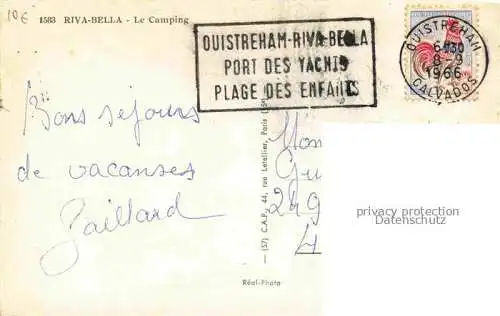 10€
1583 RIVA-BELLA - Le Camping
OUISTREHAM-RIVA-BELLA
PORT DES YACHTS
PLAGE DES ENFANTS
OUISTREHAM
6H30
8-9
1966
CALVADOS
Bons séjours
de vacanses
Gaillard
(57) C.A.P., 44, rue Letellier, Paris (15
Réal-Photo
Mon
Gu
249
privacy protection
Datenschutz